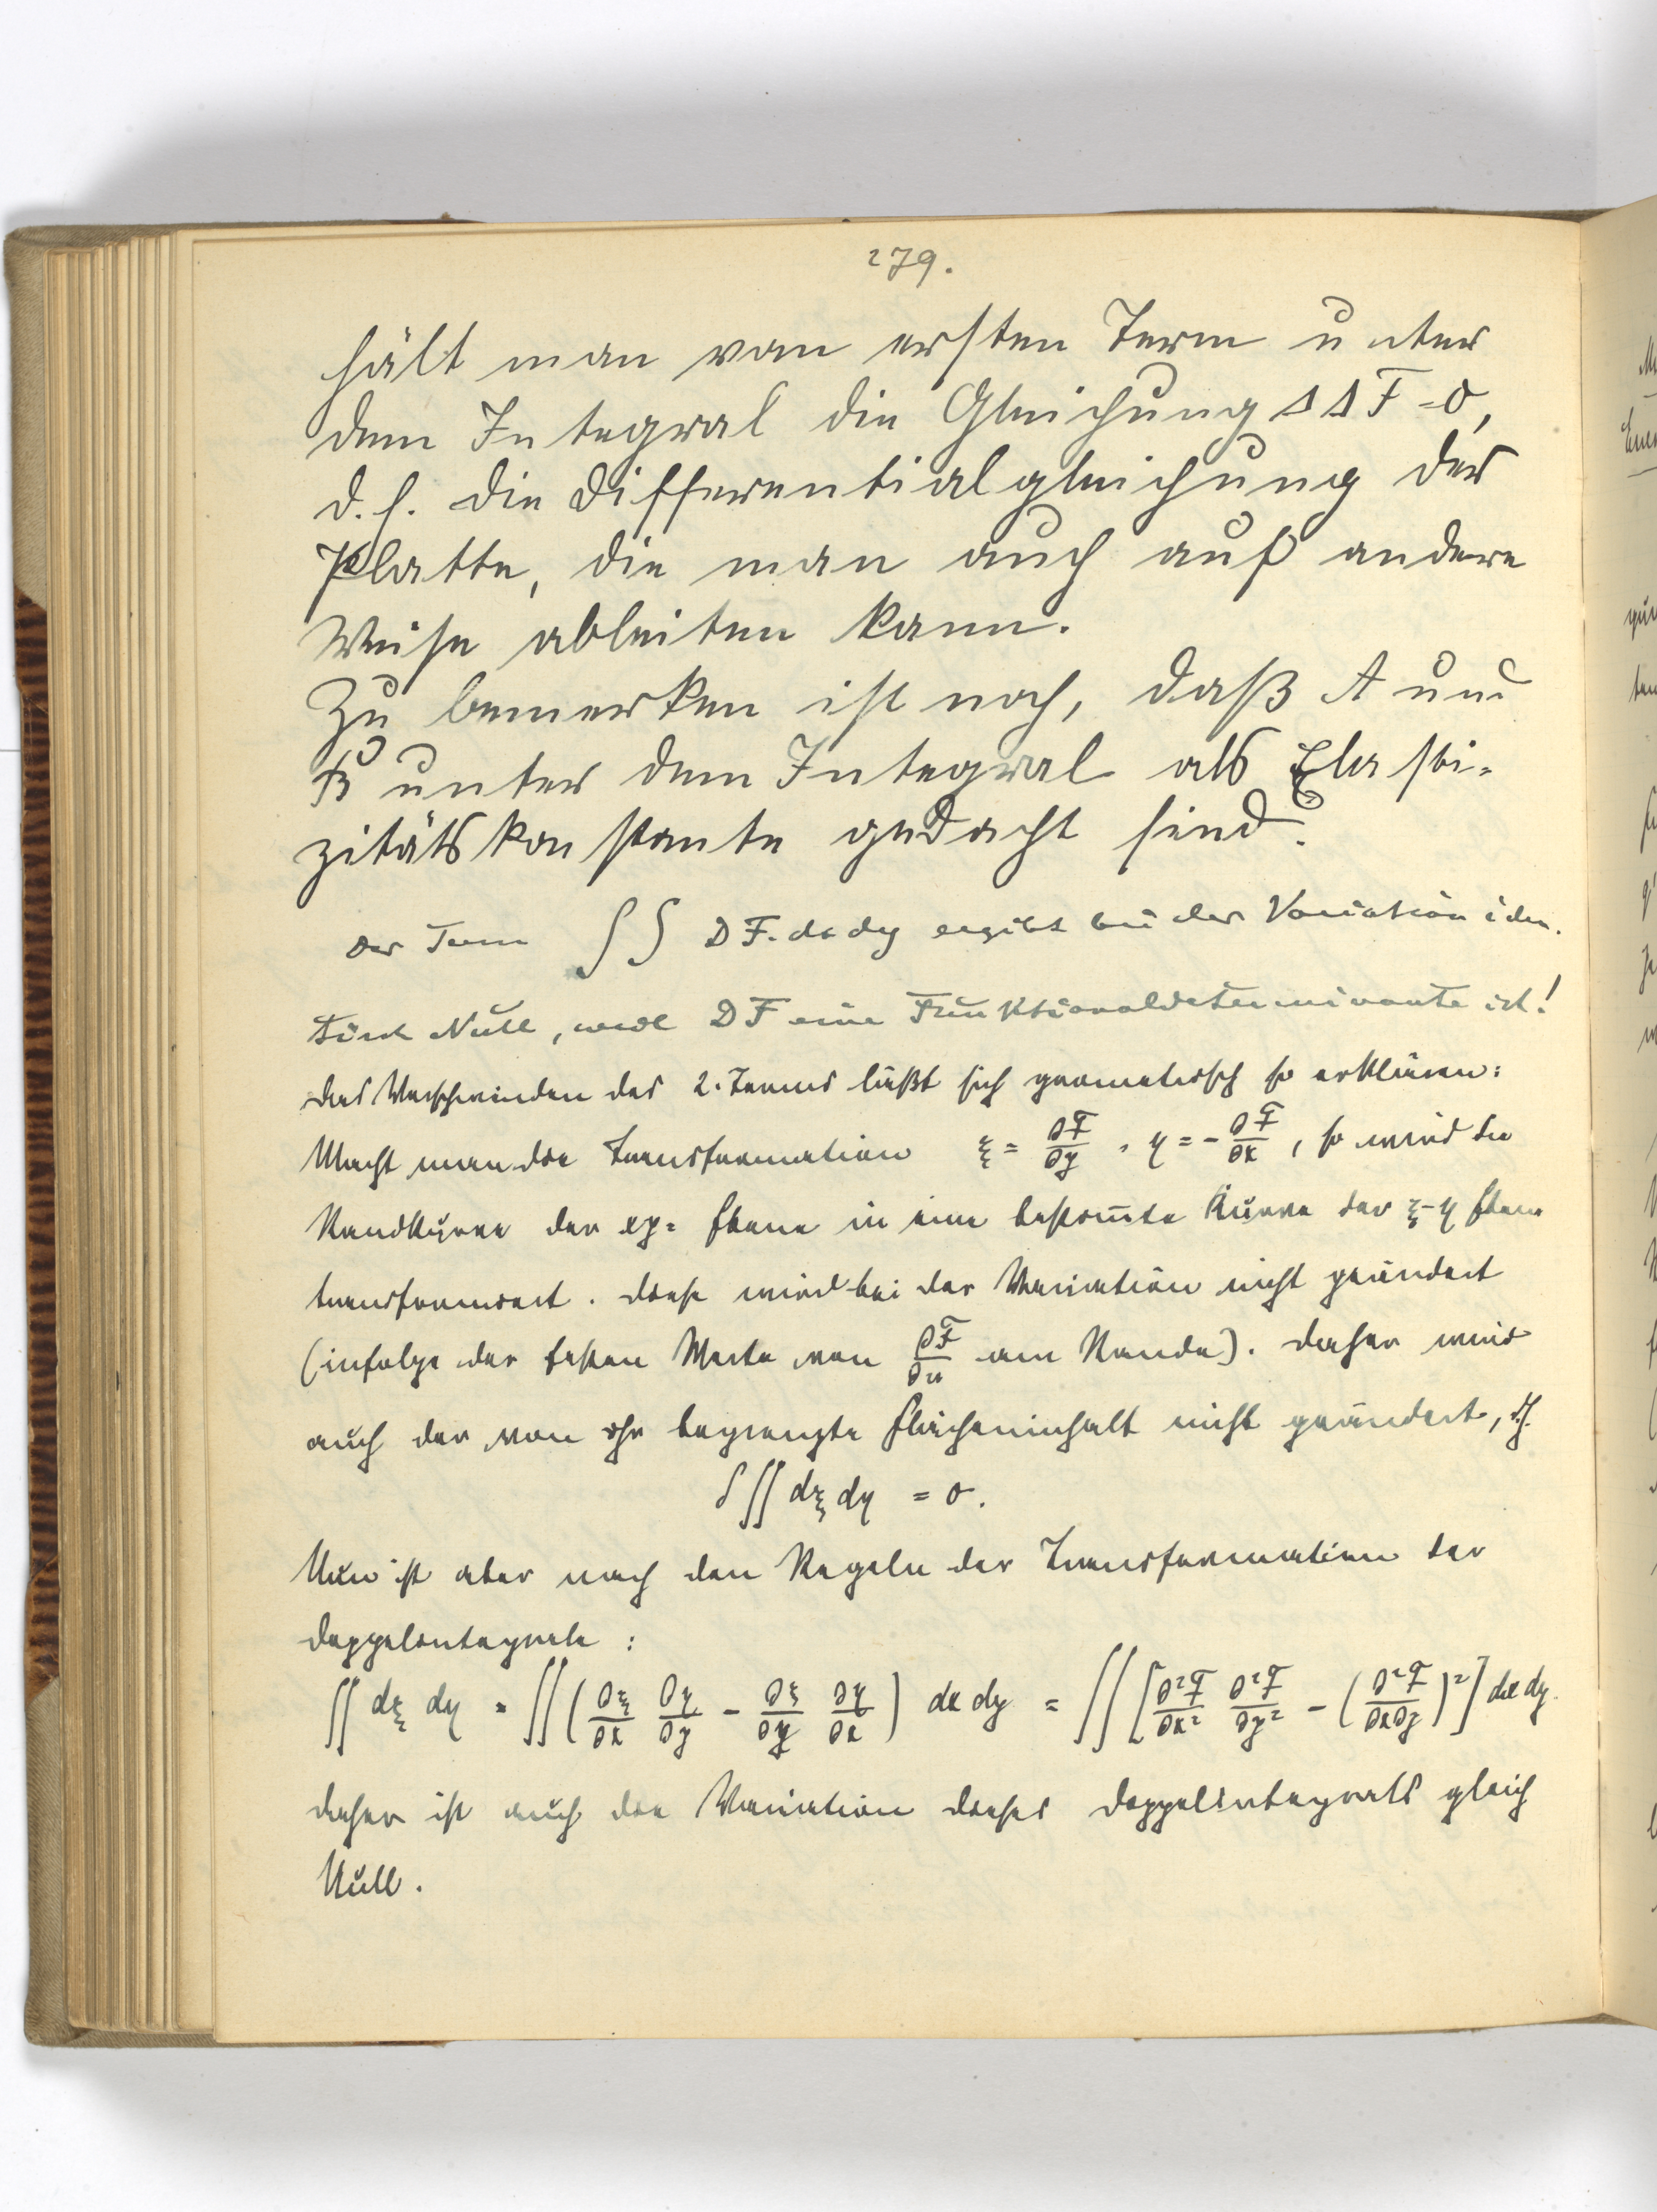 279.
hält man vom ersten Term unter
dem Integral die Gleichung ΔΔF=0,
d.h. die Differentialgleichung der
Platte, die man auch auf andere
Weise ableiten kann.
Zu bemerken ist noch, daß A und
B unter dem Integral als Elasti-
zitätskonstante gedacht sind.
Der Term ∫∫ DF. dx dy ergibt bei der Variation iden.
tisch Null, weil DF eine Funktionaldeterminante ist!
Das Verschwinden des 2. Terms läßt sich geometrisch so erklären:
Macht man die Transformation ξ = ∂F/∂y , η = - ∂F/∂x , so wird die
Randkurve der xy= Ebene in eine bestimmte Kurve der ξ-η Ebene
transformiert. Diese wird bei der Variation nicht geändert
(infolge der festen Werte von ∂F/∂n am Rande). Daher wird
auch der von ihr begrenzte Flächeninhalt nicht geändert, d.h.
δ∫∫ dξ dη = 0.
Nun ist aber nach den Regeln der Transformation der
Doppelintegrale :
∫∫ dξ dη = ∫∫ (∂ξ/∂x ∂η/∂y - ∂ξ/∂y ∂η/∂x) dx dy = ∫∫ [∂²F/∂x² ∂²F/∂y² - (∂²F/∂x∂y)²] dx dy.
daher ist auch die Variation dieses Doppelintegrals gleich
Null.